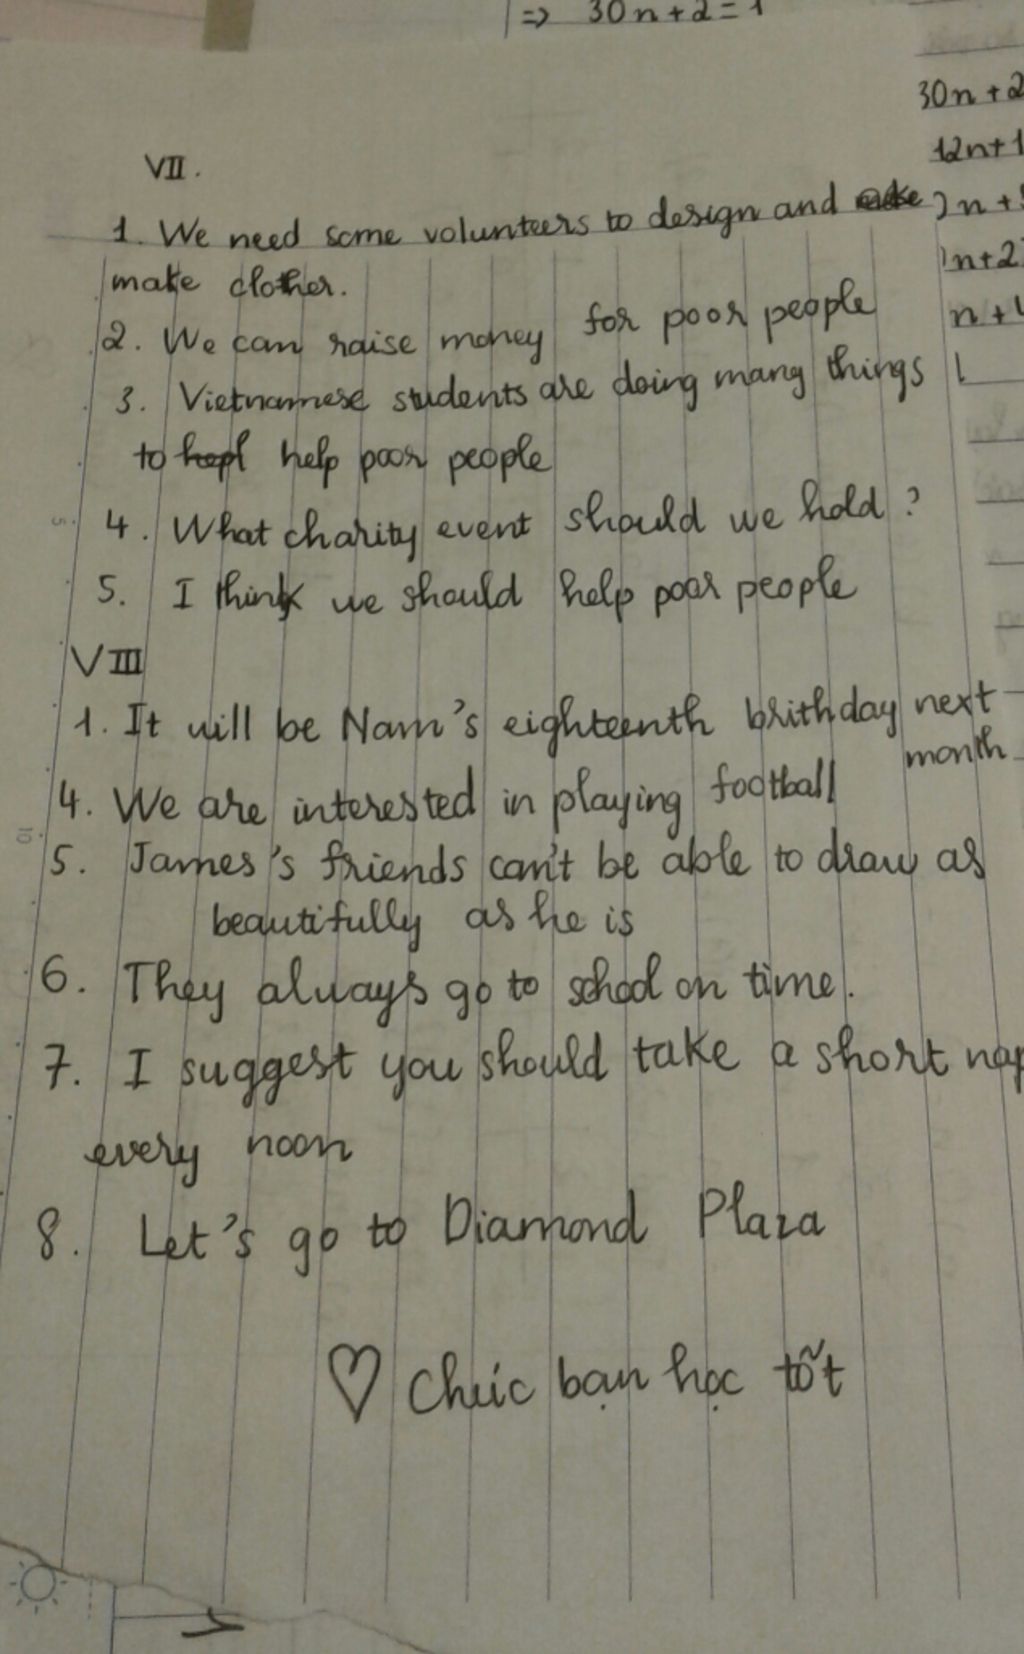 => 30n+2=1
30n+2
12n+1
n+2
VII.
1. We need some volunteers to design and
make clother.
2. We can raise money for poor people
3. Vietnamese students are doing many things
to hepl help poor people
4. What charity event should we hold?
5. I think we should help poor people
VIII
1. It will be Nam's eighteenth brithday next
month
4. We are interested in playing football
5. James's friends can't be able to draw as
beautifully as he is
6. They always go to school on time.
7. I suggest you should take a short nap
every noon
8. Let's go to Diamond Plaza
♡ Chúc bạn học tốt